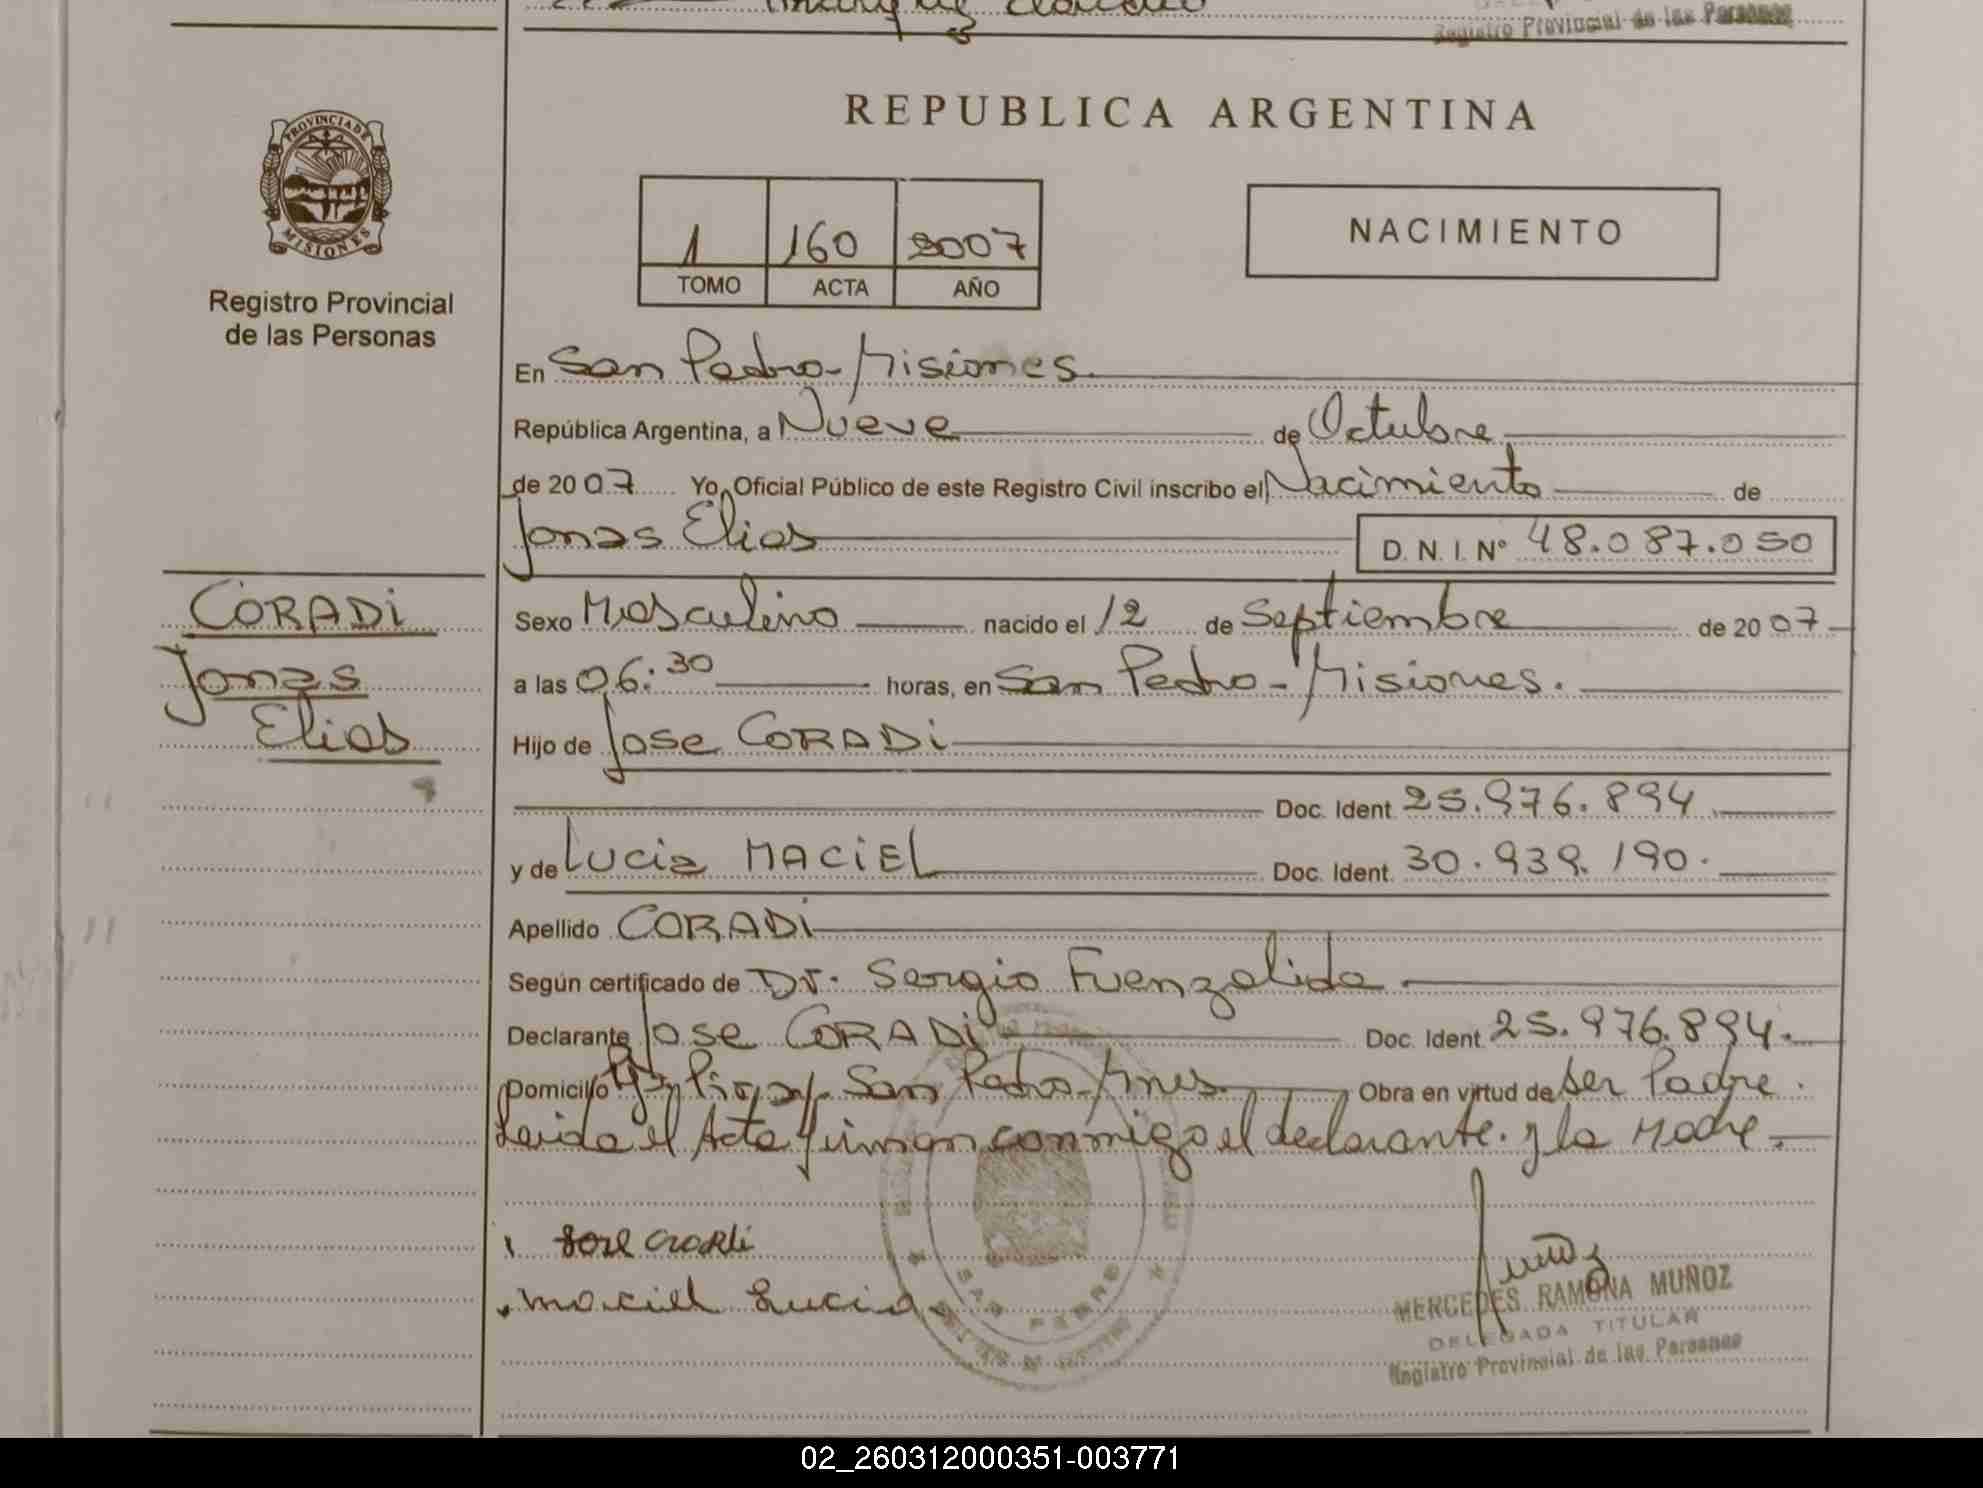 Registro Provincial de las Personas
PROVINCIA DE
MISIONES
Registro Provincial
de las Personas
REPUBLICA ARGENTINA
1 160 2007
TOMO ACTA AÑO
NACIMIENTO
En San Pedro-Misiones.
República Argentina, a Nueve de Octubre
de 2007 Yo, Oficial Público de este Registro Civil inscribo el Nacimiento de
Jonas Elias D. N. I. Nº 48.087.050
CORADI
Jonas
Elias
Sexo Masculino nacido el 12 de Septiembre de 2007
a las 06:30 horas, en San Pedro-Misiones.
Hijo de Jose CORADI
Doc. Ident. 25.976.894
y de Lucia MACIEL Doc. Ident. 30.939.190.
Apellido CORADI
Según certificado de Dr. Sergio Fuenzalida
Declarante Jose CORADI Doc. Ident. 25.976.894.
Domicilio San Pedro-Mnes. Obra en virtud de ser Padre.
Leida el Acta firman conmigo el declarante y la Madre.
Jose
maciel Lucia
SAN PEDRO
MERCEDES RAMONA MUÑOZ
DELEGADA TITULAR
Registro Provincial de las Personas
02_260312000351-003771